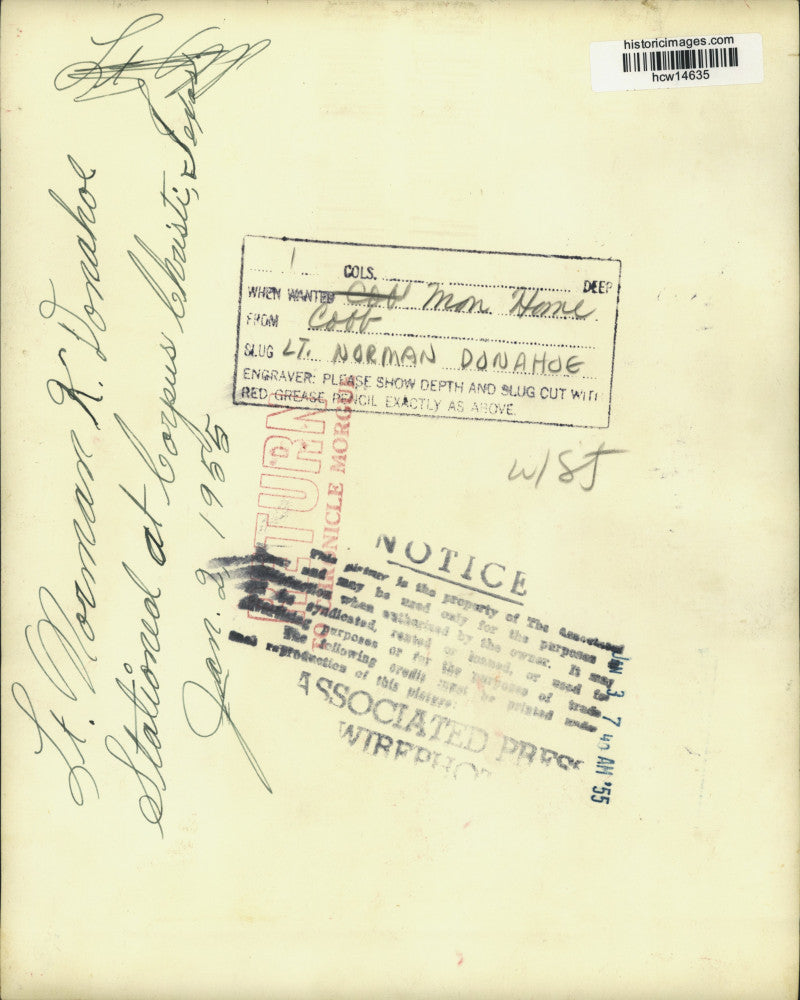 historicimages.com
hcw14635
Lt
Lt. Norman K. Donahoe
Stationed at Corpus Christi, Texas
Jan. 2 1955
1 COLS. DEEP
WHEN WANTED Mon Home
FROM Cobb
SLUG LT. NORMAN DONAHOE
ENGRAVER: PLEASE SHOW DEPTH AND SLUG CUT WITH
RED GREASE PENCIL EXACTLY AS ABOVE.
RETURN
TO CHRONICLE MORGUE
w/St
NOTICE
This picture is the property of The Associated
and may be used only for the purposes
when authorized by the owner. It may
be syndicated, rented or loaned, or used for
advertising purposes or for the purposes of trade.
The following credit must be printed
reproduction of this picture:
ASSOCIATED PRESS
WIREPHOTO
JAN 3 7 40 AM '55